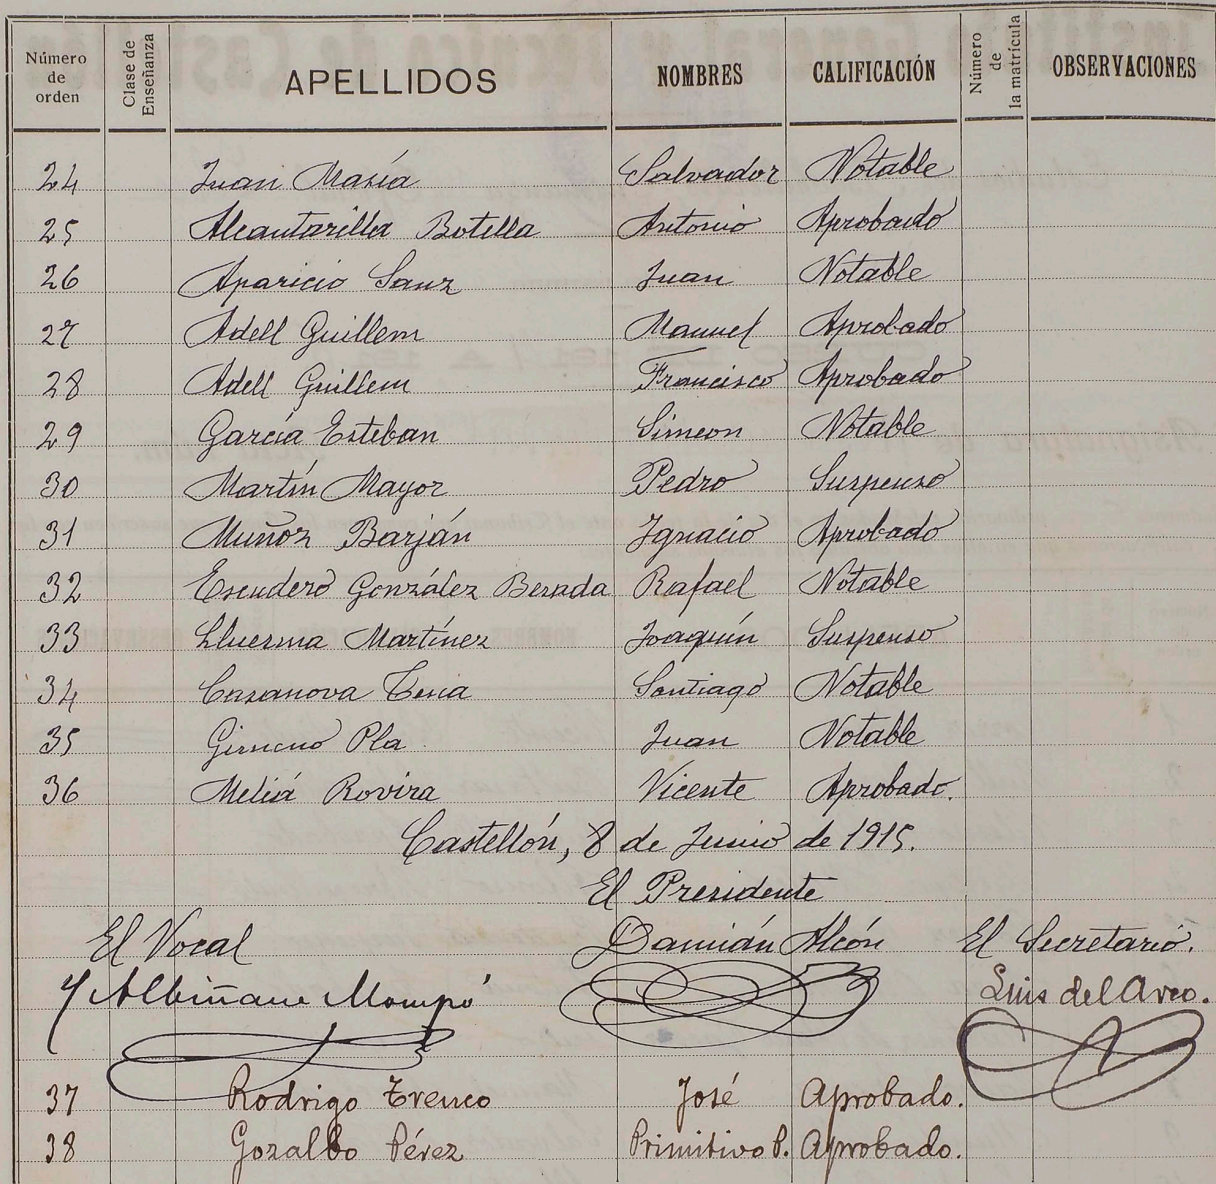 Número de orden Clase de Enseñanza APELLIDOS NOMBRES CALIFICACIÓN Número de la matrícula OBSERVACIONES
24 Juan María Salvador Notable
25 Alcantarilla Botella Antonio Aprobado
26 Aparicio Sanz Juan Notable
27 Adell Guillem Manuel Aprobado
28 Adell Guillem Francisco Aprobado
29 García Esteban Simeon Notable
30 Martín Mayor Pedro Suspenso
31 Muñoz Barján Ignacio Aprobado
32 Escudero González Besada Rafael Notable
33 Lluesma Martínez Joaquín Suspenso
34 Casanova Tena Santiago Notable
35 Gimeno Pla Juan Notable
36 Meliá Rovira Vicente Aprobado.
Castellón, 8 de Junio de 1915.
El Presidente
El Vocal Damián Alcón El Secretario.
Albiñana Mompó Luis del Arco.
37 Rodrigo Trenco José Aprobado.
38 Gozalbo Pérez Primitivo P. Aprobado.